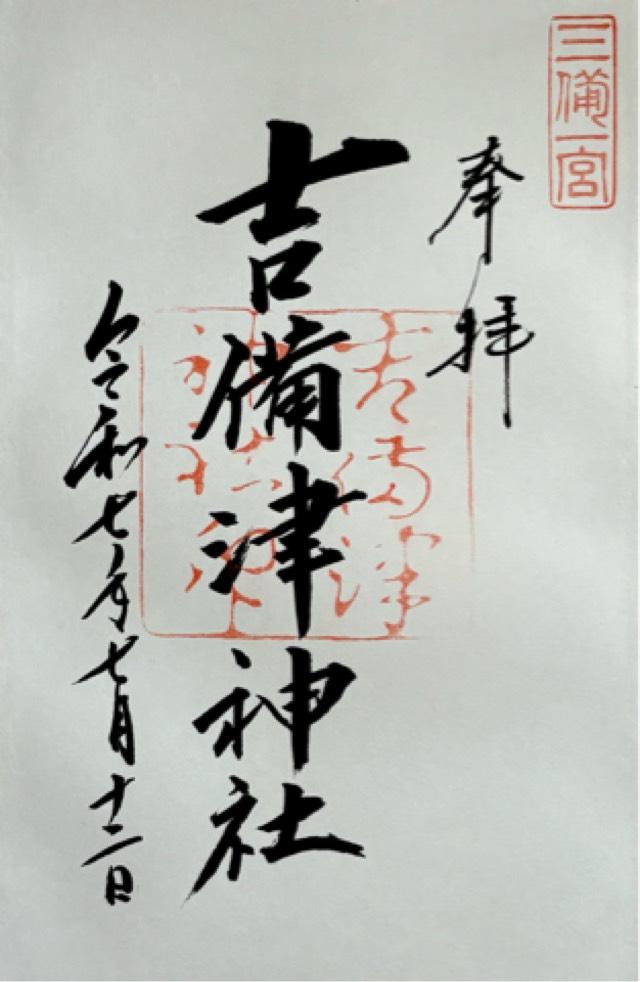 三備一宮
奉拝
吉備津神社
令和七年七月十二日